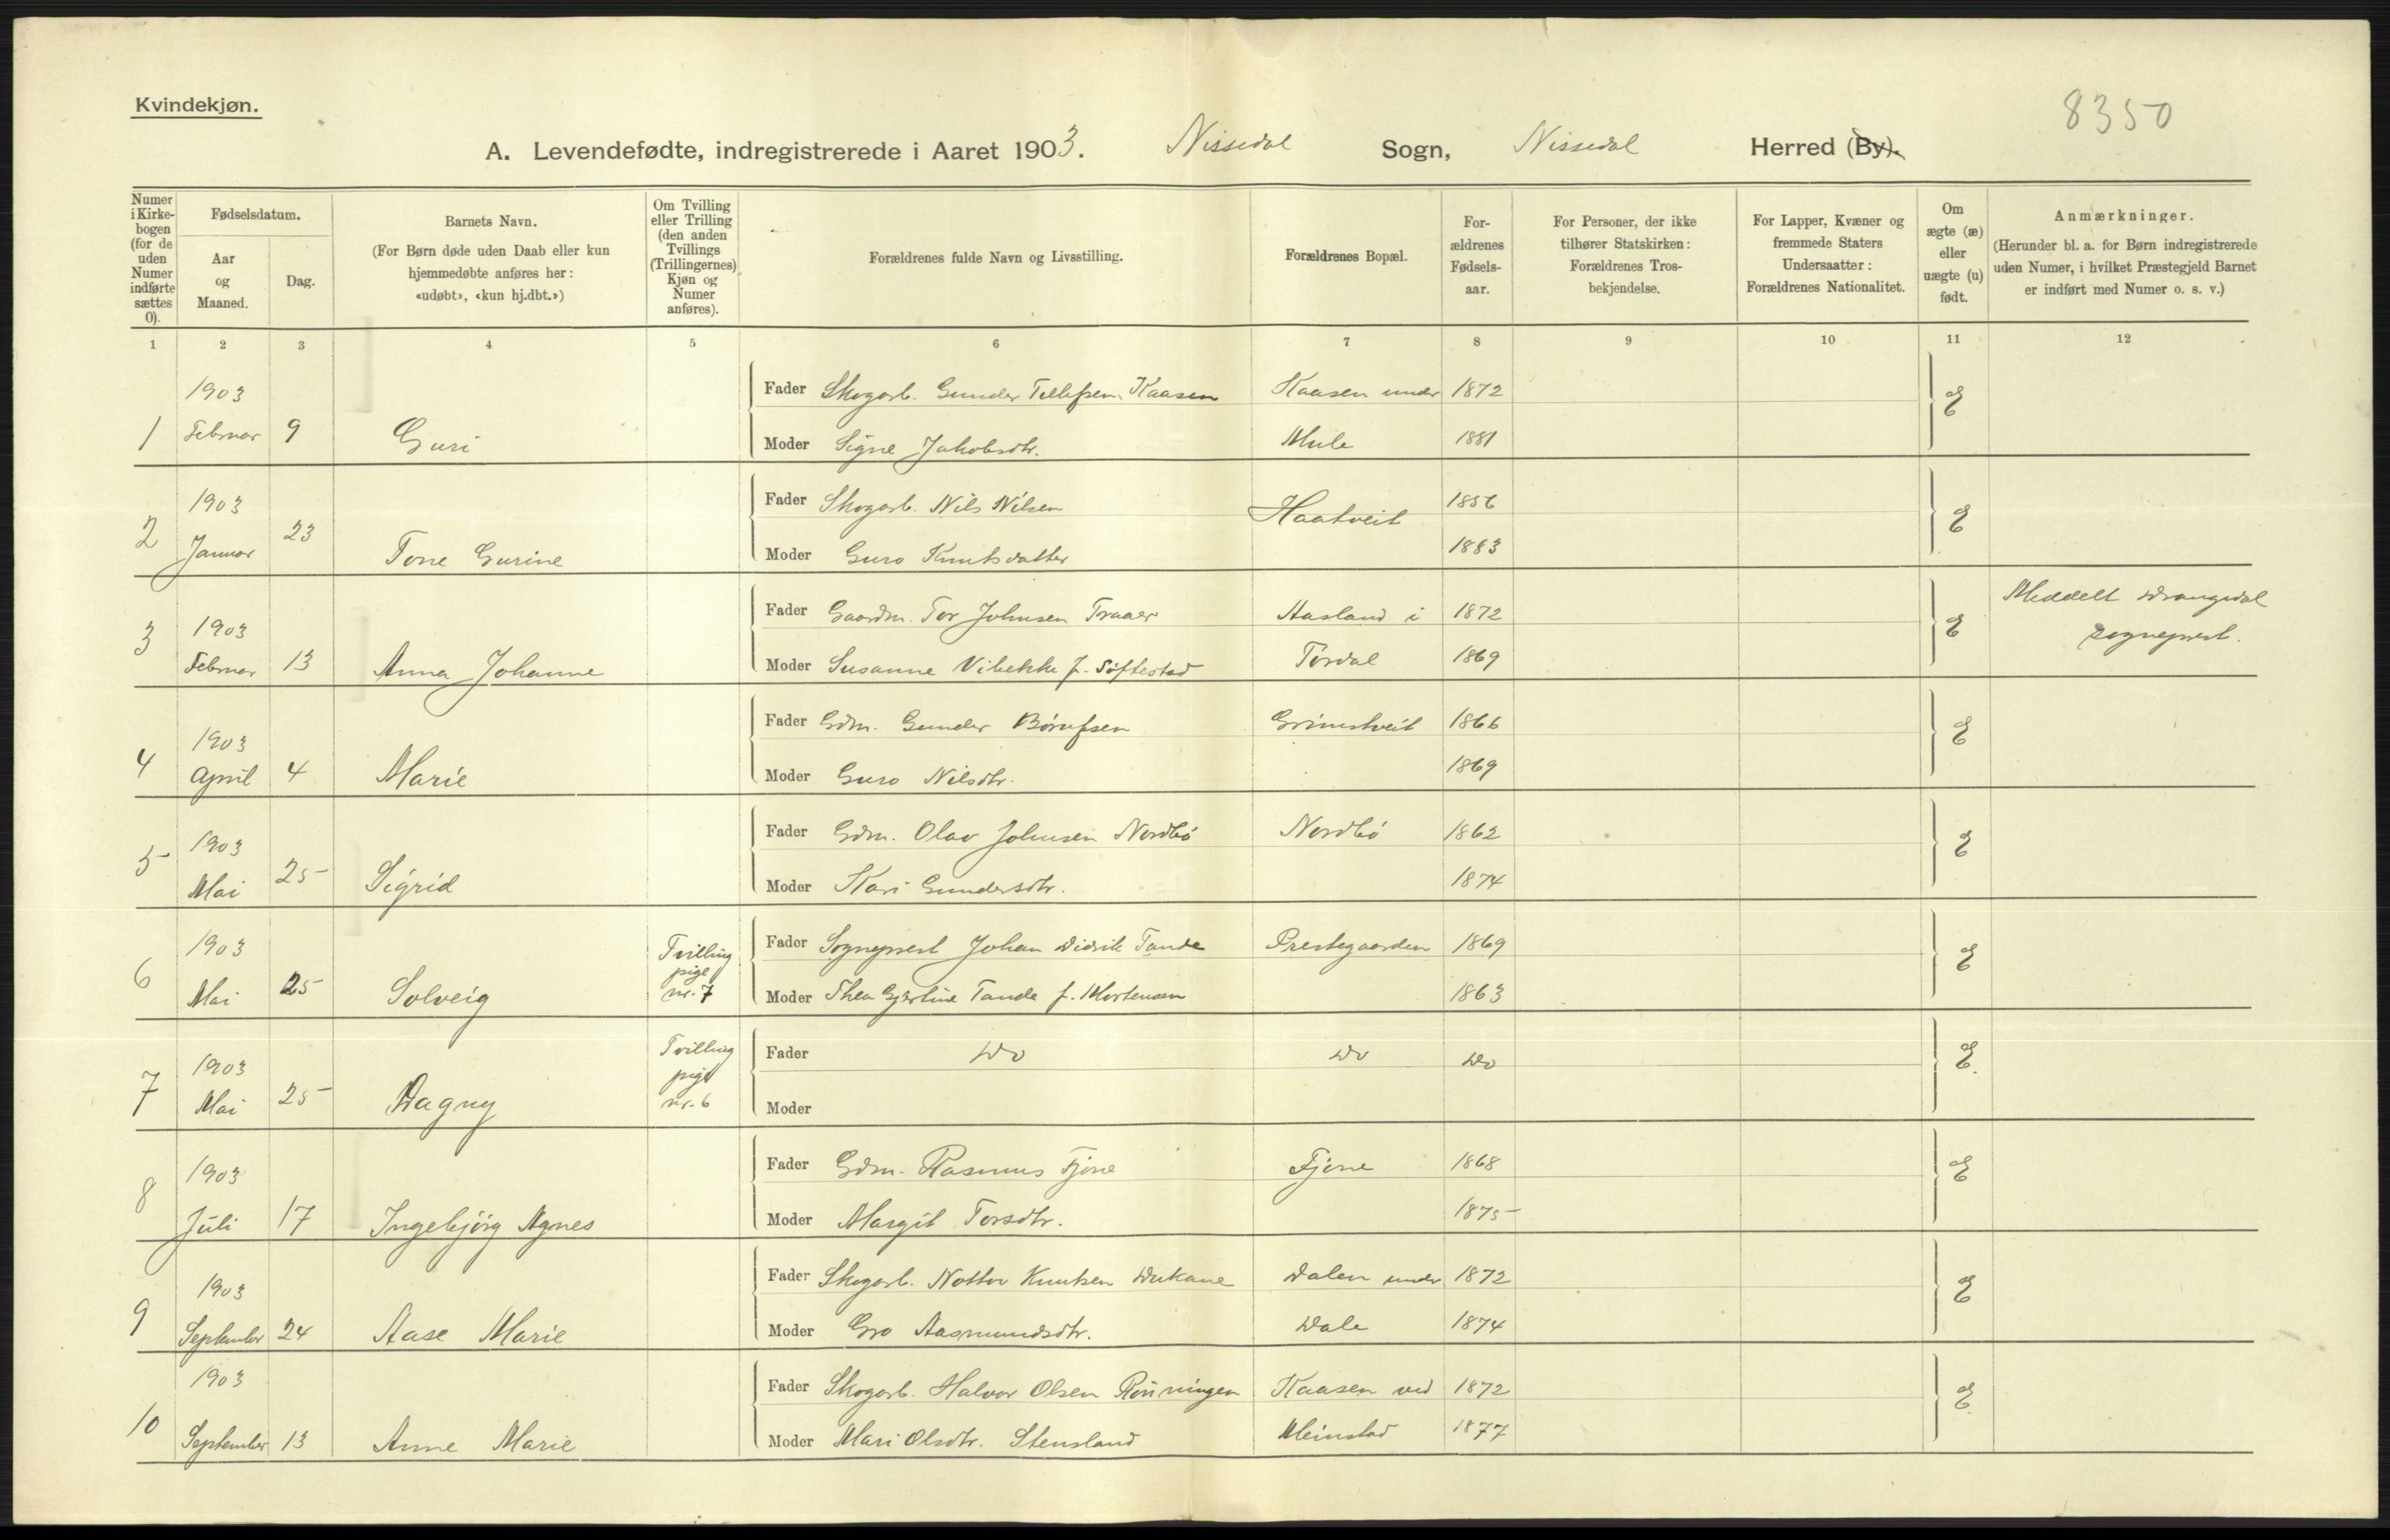 Kvindekjøn.
8350
A. Levendefødte, indregistrerede i Aaret 1903. Nissedal Sogn, Nissedal Herred (By).
Numer i Kirkebogen (for de uden Numer indførte sættes 0).
Fødselsdatum.
Aar og Maaned.
Dag.
Barnets Navn.
(For Børn døde uden Daab eller kun
hjemmedøbte anføres her:
«udøbt», «kun hj.dbt.»)
Om Tvilling
eller Trilling
(den anden
Tvillings
(Trillingernes)
Kjøn og
Numer
anføres).
Forældrenes fulde Navn og Livsstilling.
Forældrenes Bopæl.
For-
ældrenes
Fødsels-
aar.
For Personer, der ikke
tilhører Statskirken:
Forældrenes Tros-
bekjendelse.
For Lapper, Kvæner og
fremmede Staters
Undersaatter:
Forældrenes Nationalitet.
Om
ægte (æ)
eller
uægte (u)
født.
Anmærkninger.
(Herunder bl. a. for Børn indregistrerede
uden Numer, i hvilket Præstegjeld Barnet
er indført med Numer o. s. v.)
1 2 3 4 5 6 7 8 9 10 11 12
1903 Fader Skogarb. Gunder Tellefsen Kaasen Kaasen under 1872 E
1 Februar 9 Guri Moder Signe Jakobsdtr. Mule 1881
1903 Fader Skogarb. Nils Nilsen Haatveit 1856 E
2 Januar 23 Tone Gurine Moder Guro Knutsdatter 1883
1903 Fader Gaardm. Tor Johnsen Traaer Aasland i 1872 E Meddelt Drangedal
3 Februar 13 Anna Johanne Moder Susanne Vibekke f. Søftestad Tørdal 1869 sogneprest.
1903 Fader Gdm. Gunder Børufsen Grimstveit 1866 E
4 April 4 Marie Moder Guro Nilsdtr. 1869
1903 Fader Gdm. Olav Johnsen Nordbø Nordbø 1862 E
5 Mai 25 Sigrid Moder Kari Gundersdtr. 1874
1903 Tvilling pige nr. 7 Fader Sogneprest Johan Didrik Tande Prestegaarden 1869 E
6 Mai 25 Solveig Moder Thea Gjertine Tande f. Mortensen 1863
1903 Tvilling pige nr. 6 Fader Do Do Do E.
7 Mai 25 Dagny Moder
1903 Fader Gdm. Rasmus Fjone Fjone 1868 E
8 Juli 17 Ingebjørg Agnes Moder Margit Torsdtr. 1875
1903 Fader Skogarb. Nottov Knutsen Dukane Dalen under 1872 E
9 September 24 Aase Marie Moder Gro Aasmundsdtr. Dale 1874
1903 Fader Skogarb. Halvor Olsen Rønningen Kaasen ved 1872 E.
10 September 13 Anne Marie Moder Mari Olsdtr. Stensland Meinstad 1877